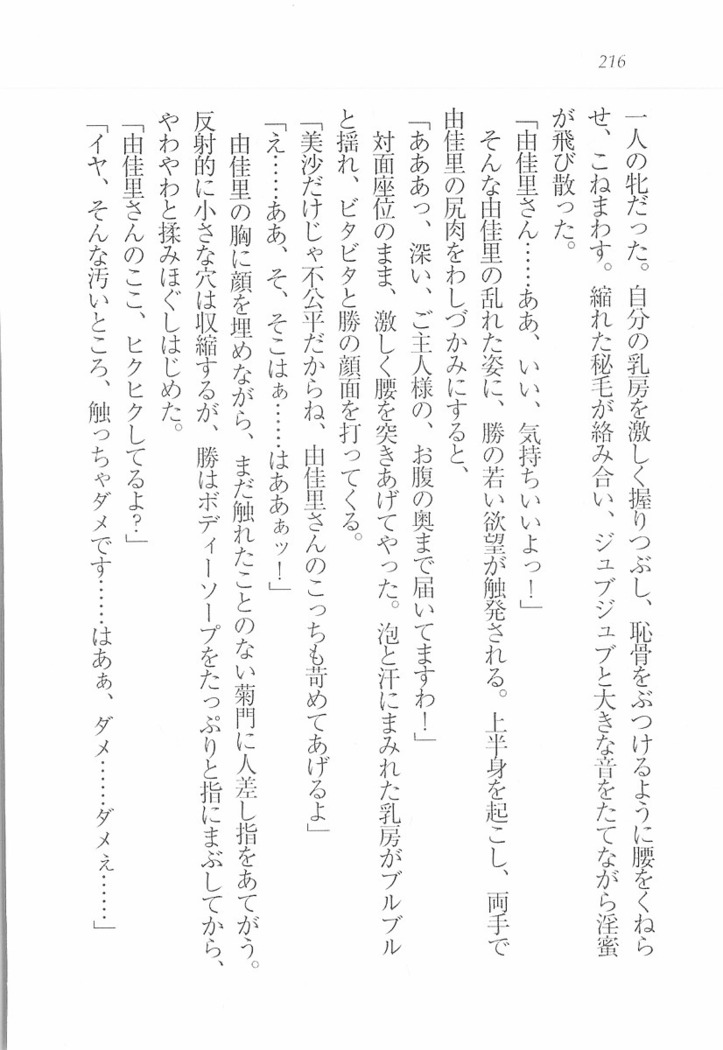 216
一人の牝だった。自分の乳房を激しく握りつぶし、恥骨をぶつけるように腰をくねら
せ、こねまわす。縮れた秘毛が絡み合い、ジュブジュブと大きな音をたてながら淫蜜
が飛び散った。
「由佳里さん……ああ、いい、気持ちいいよっ！」
そんな由佳里の乱れた姿に、勝の若い欲望が触発される。上半身を起こし、両手で
由佳里の尻肉をわしづかみにすると、
「あああっ、深い、ご主人様の、お腹の奥まで届いてますわ！」
対面座位のまま、激しく腰を突きあげてやった。泡と汗にまみれた乳房がブルブル
と揺れ、ビタビタと勝の顔面を打ってくる。
「美沙だけじゃ不公平だからね、由佳里さんのこっちも苛めてあげるよ」
「え……ああ、そ、そこはぁ……はああぁッ！」
由佳里の胸に顔を埋めながら、まだ触れたことのない菊門に人差し指をあてがう。
反射的に小さな穴は収縮するが、勝はボディーソープをたっぷりと指にまぶしてから、
やわやわと揉みほぐしはじめた。
「由佳里さんのここ、ヒクヒクしてるよ？」
「イヤ、そんな汚いところ、触っちゃダメです……はあぁ、ダメ……ダメぇ……」